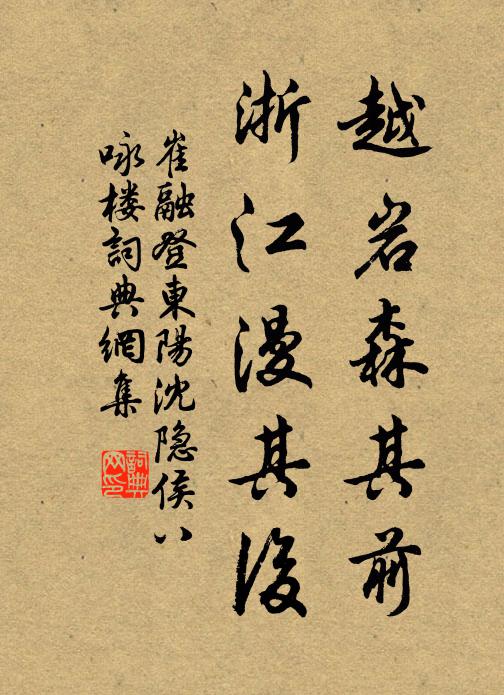 越岩森其前
浙江漫其後
崔融登東陽沈隐侯八
咏楼詞典網集
詞典网印